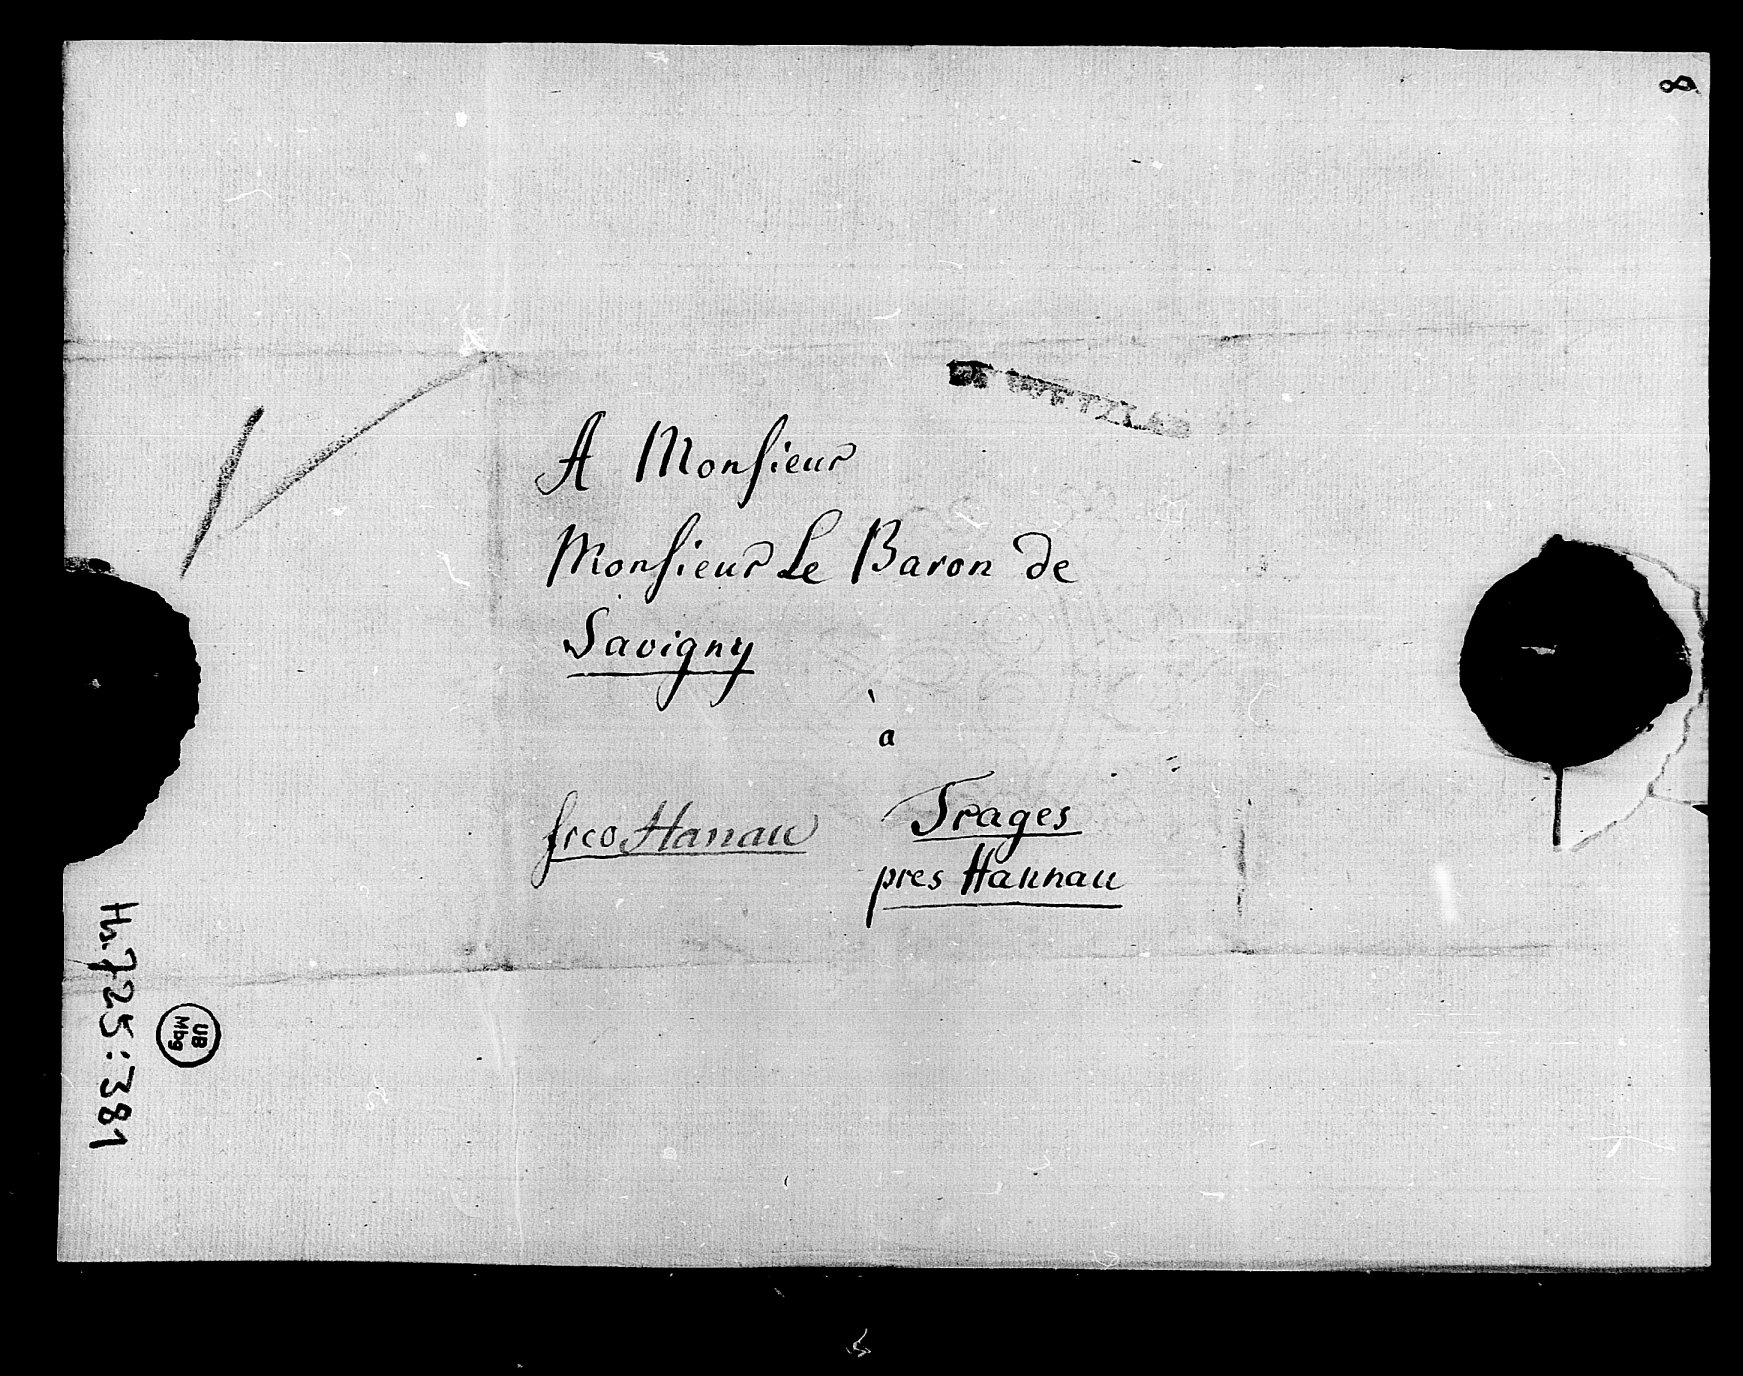 8
A Monsieur
Monsieur Le Baron de
Savigny
à
frco Hanau
Trages
pres Hannau
Hs. 725:381
UB
Mbg